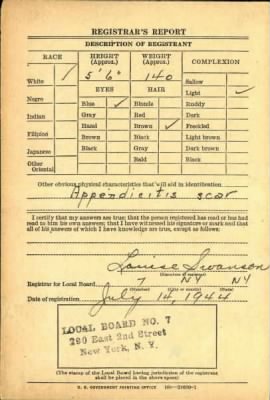 REGISTRAR'S REPORT
DESCRIPTION OF REGISTRANT
RACE HEIGHT (Approx.) WEIGHT (Approx.) COMPLEXION
White ✓ 5' 6" 140 Sallow
EYES HAIR Light ✓
Negro Blue ✓ Blonde Ruddy
Indian Gray Red Dark
Hazel Brown ✓ Freckled
Filipino Brown Black Light brown
Japanese Black Gray Dark brown
Other Oriental Bald Black
Other obvious physical characteristics that will aid in identification
Appendicitis scar
I certify that my answers are true; that the person registered has read or has had
read to him his own answers; that I have witnessed his signature or mark and that
all of his answers of which I have knowledge are true, except as follows:
Louise Swanson
Registrar for Local Board 7 NY NY
(Number) (City or county) (State)
Date of registration July 14, 1944
LOCAL BOARD NO. 7
290 East 2nd Street
New York, N. Y.
(The stamp of the Local Board having jurisdiction of the registrant
shall be placed in the above space)
U. S. GOVERNMENT PRINTING OFFICE